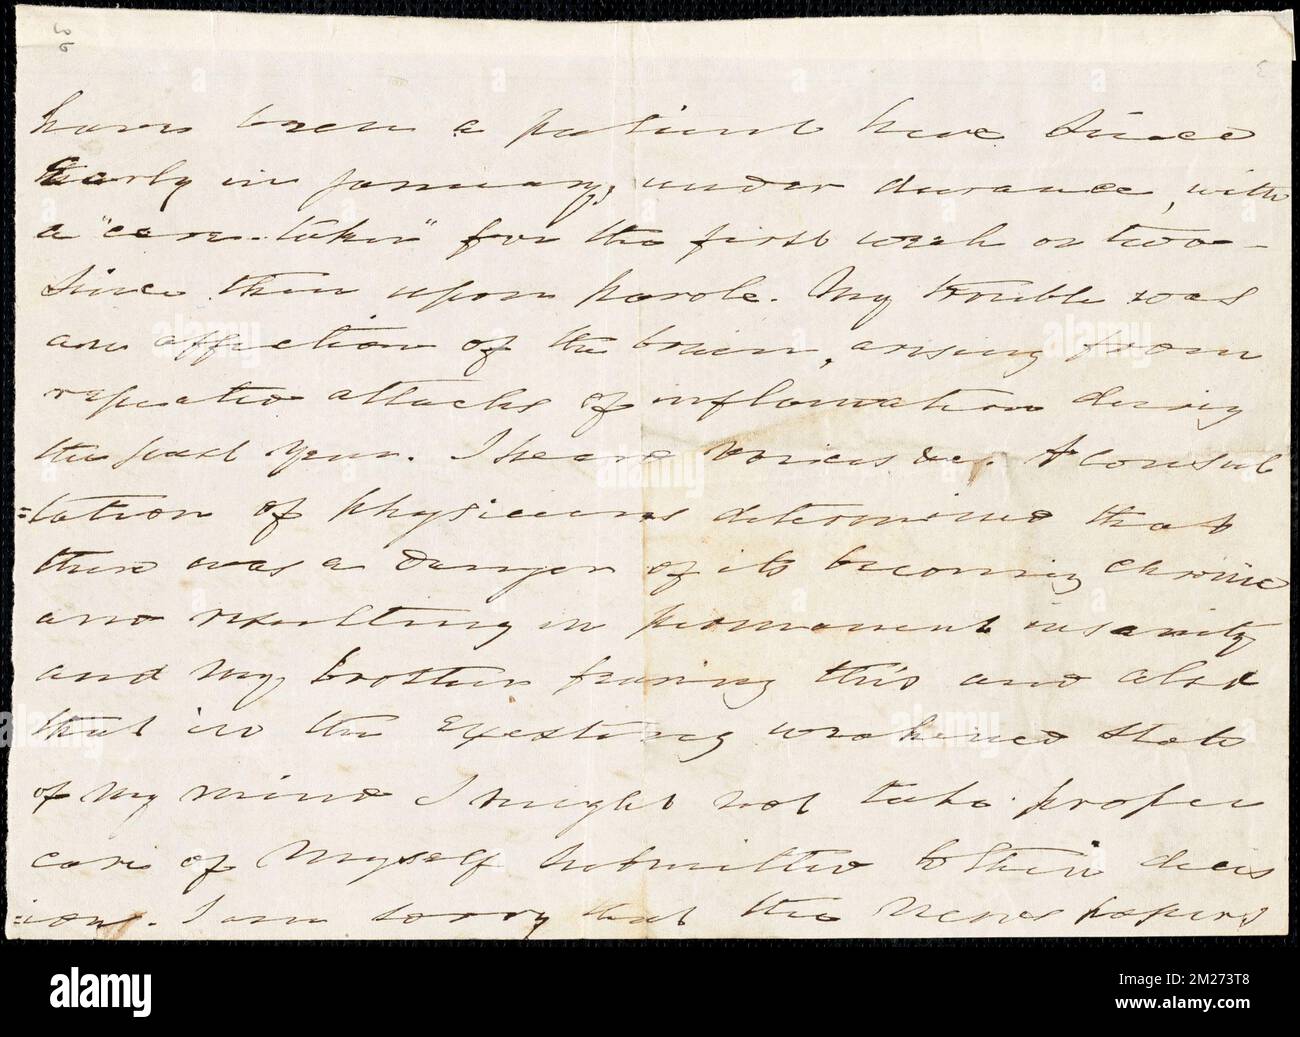 have been a patient here since
early in January, under durance, with
a "care-taker" for the first week or two -
since then upon parole. My trouble was
an affection of the brain, arising from
repeated attacks of inflamation during
the past year. I heard voices &c. A consul
=tation of physicians determined that
there was a danger of its becoming chronic
and resulting in permanent insanity
and my brothers fearing this and also
that in the existing weakened state
of my mind I might not take proper
care of myself submitted to their decis
=ion. I am sorry that the newspapers
alamy
Image ID: 2M273T8
www.alamy.com